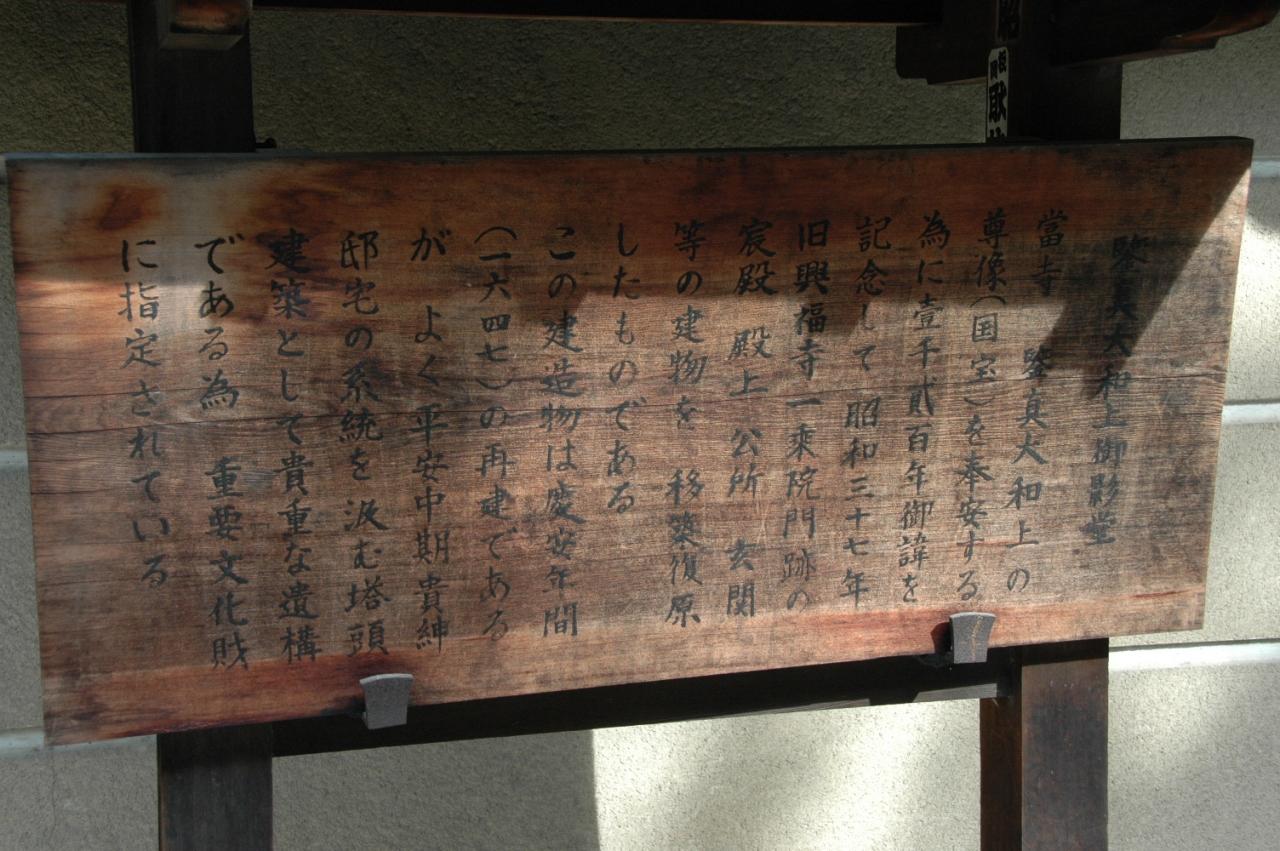 鑒真大和上御影堂
當寺 鑒真大和上の
尊像(国宝)を奉安する
為に壹千貳百年御諱を
記念して昭和三十七年
旧興福寺一乗院門跡の
宸殿 殿上 公所 玄関
等の建物を 移築復原
したものである
この建造物は慶安年間
(一六四七)の再建である
が よく平安中期貴紳
邸宅の系統を汲む塔頭
建築として貴重な遺構
である為 重要文化財
に指定されている